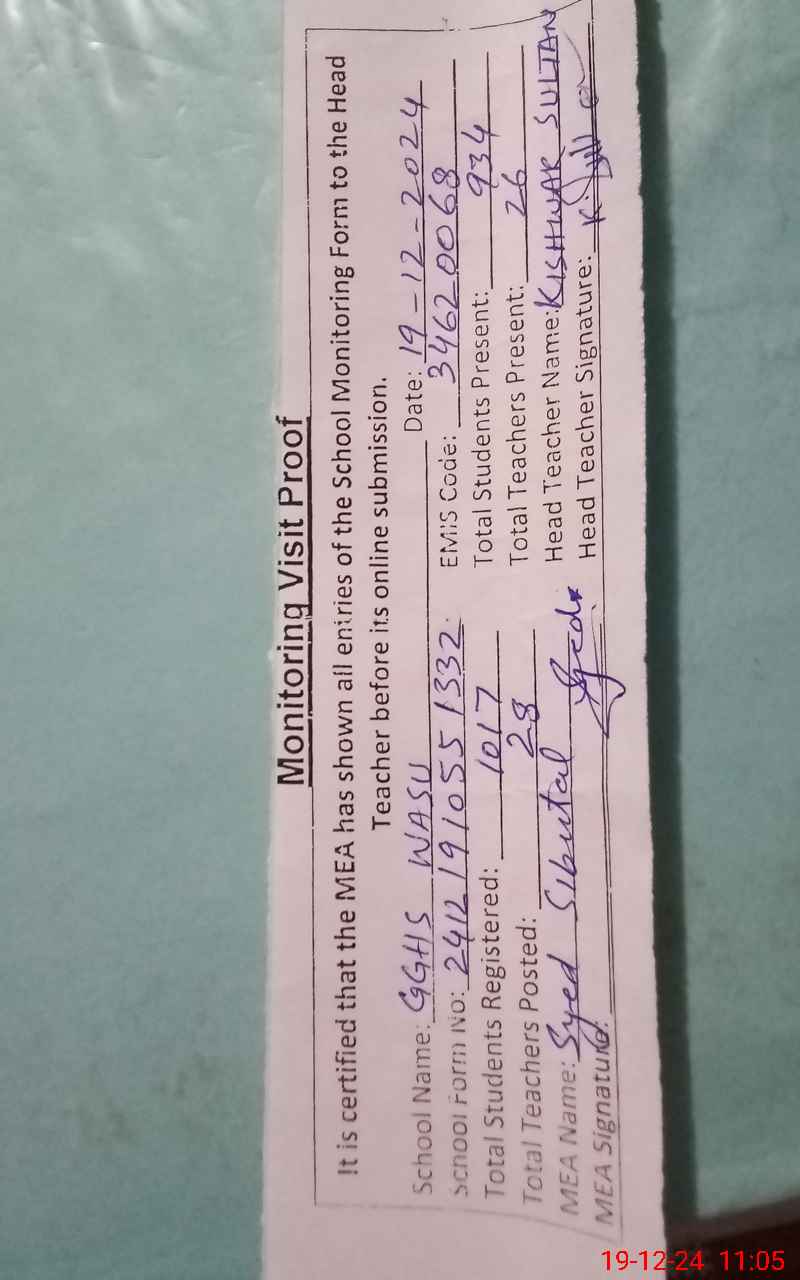 Monitoring Visit Proof
It is certified that the MEA has shown all entries of the School Monitoring Form to the Head
Teacher before its online submission.
School Name: GGHS WASU Date: 19-12-2024
School Form No: 24121910551332 EMIS Code: 34620068
Total Students Registered: 1017 Total Students Present: 934
Total Teachers Posted: 28 Total Teachers Present: 26
MEA Name: Syed Sibutal Head Teacher Name: KISHWAR SULTAN
MEA Signature: Head Teacher Signature:
19-12-24 11:05